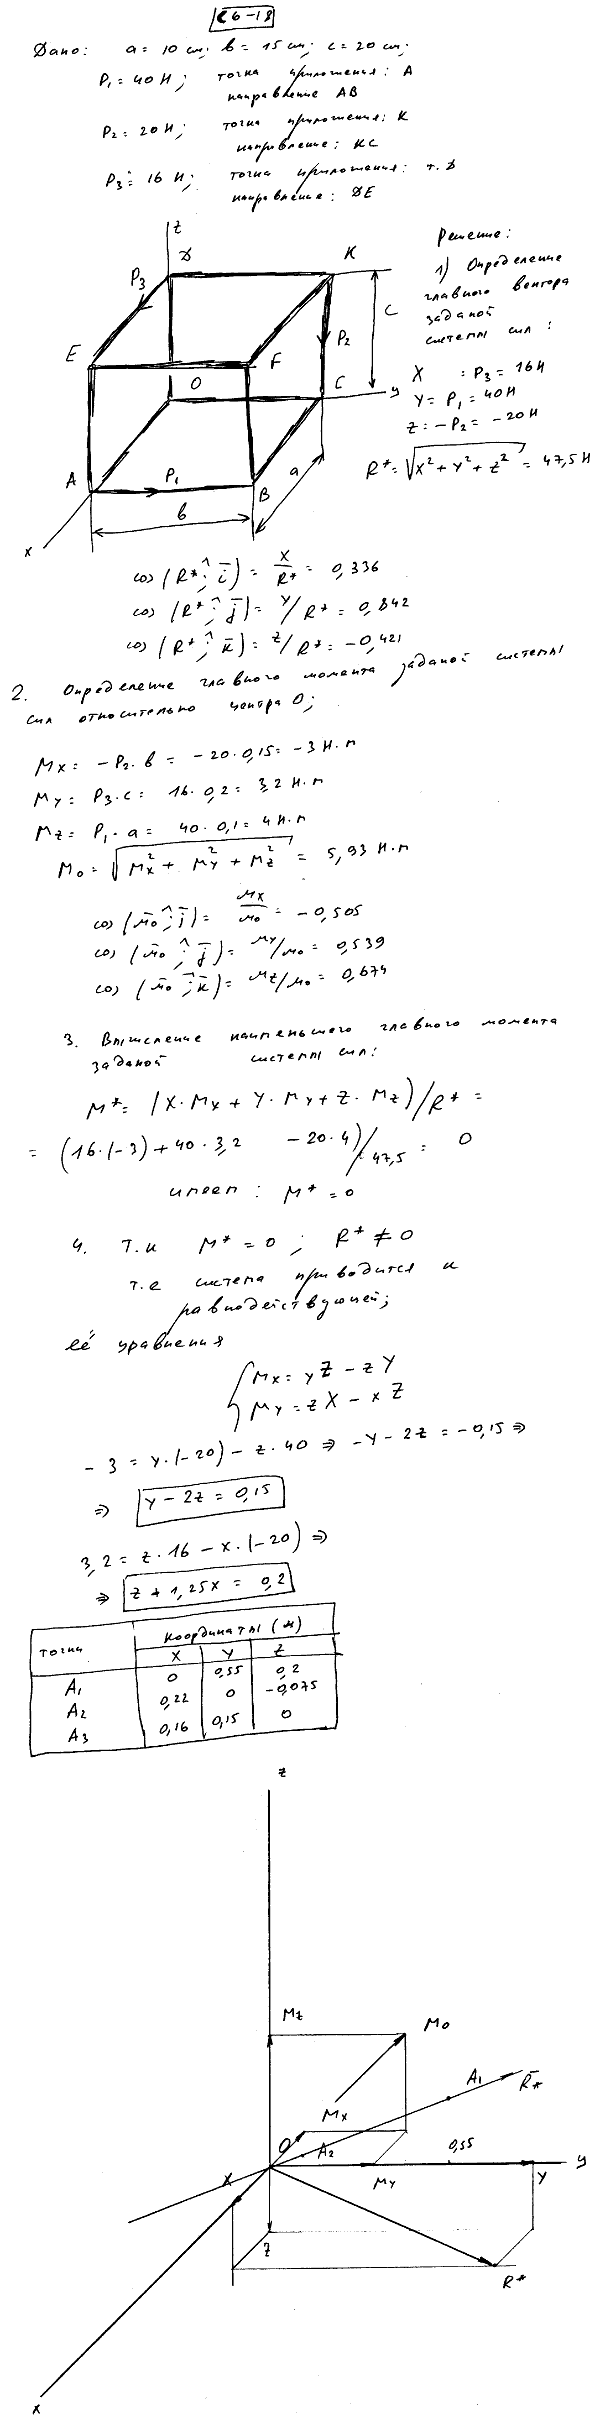 С6-18
Дано: a = 10 см; b = 15 см; c = 20 см;
P₁ = 40 Н; точка приложения: A
направление AB
P₂ = 20 Н; точка приложения: K
направление: KC
P₃ = 16 Н; точка приложения: т. D
направление: DE
z
D
K
P₃
E
F
P₂
C
O
C
y
A
P₁
B
a
b
x
Решение:
1) Определение
главного вектора
заданой
системы сил:
X : P₃ = 16 Н
Y = P₁ = 40 Н
Z = -P₂ = -20 Н
R* = √X² + Y² + Z² = 47,5 Н
cos (R* ; i) = X/R* = 0,336
cos (R* ; j) = Y/R* = 0,842
cos (R* ; k) = Z/R* = -0,421
2. Определение главного момента заданой системы
сил относительно центра O;
Mx = -P₂·b = -20·0,15 = -3 Н·м
My = P₃·c = 16·0,2 = 3,2 Н·м
Mz = P₁·a = 40·0,1 = 4 Н·м
M₀ = √Mx² + My² + Mz² = 5,93 Н·м
cos (M₀ ; i) = Mx/M₀ = -0,505
cos (M₀ ; j) = My/M₀ = 0,539
cos (M₀ ; k) = Mz/M₀ = 0,674
3. Вычисление наименьшего главного момента
заданой системы сил:
M* = (X·Mx + Y·My + Z·Mz)/R* =
= (16·(-3) + 40·3,2 - 20·4)/47,5 = 0
имеем: M* = 0
4. Т.к M* = 0 ; R* ≠ 0
т.е система приводится к
равнодействующей;
её уравнения
{ Mx = yZ - zY
My = zX - xZ
-3 = y·(-20) - z·40 ⇒ -y - 2z = -0,15 ⇒
⇒ y - 2z = 0,15
3,2 = z·16 - x·(-20) ⇒
⇒ z + 1,25x = 0,2
точки координаты (м)
X Y Z
A₁ 0 0,55 0,2
A₂ 0,22 0 -0,075
A₃ 0,16 0,15 0
z
Mz
M₀
A₁
R*
Mx
O
A₂
0,55
y
X
My
Y
Z
R*
x